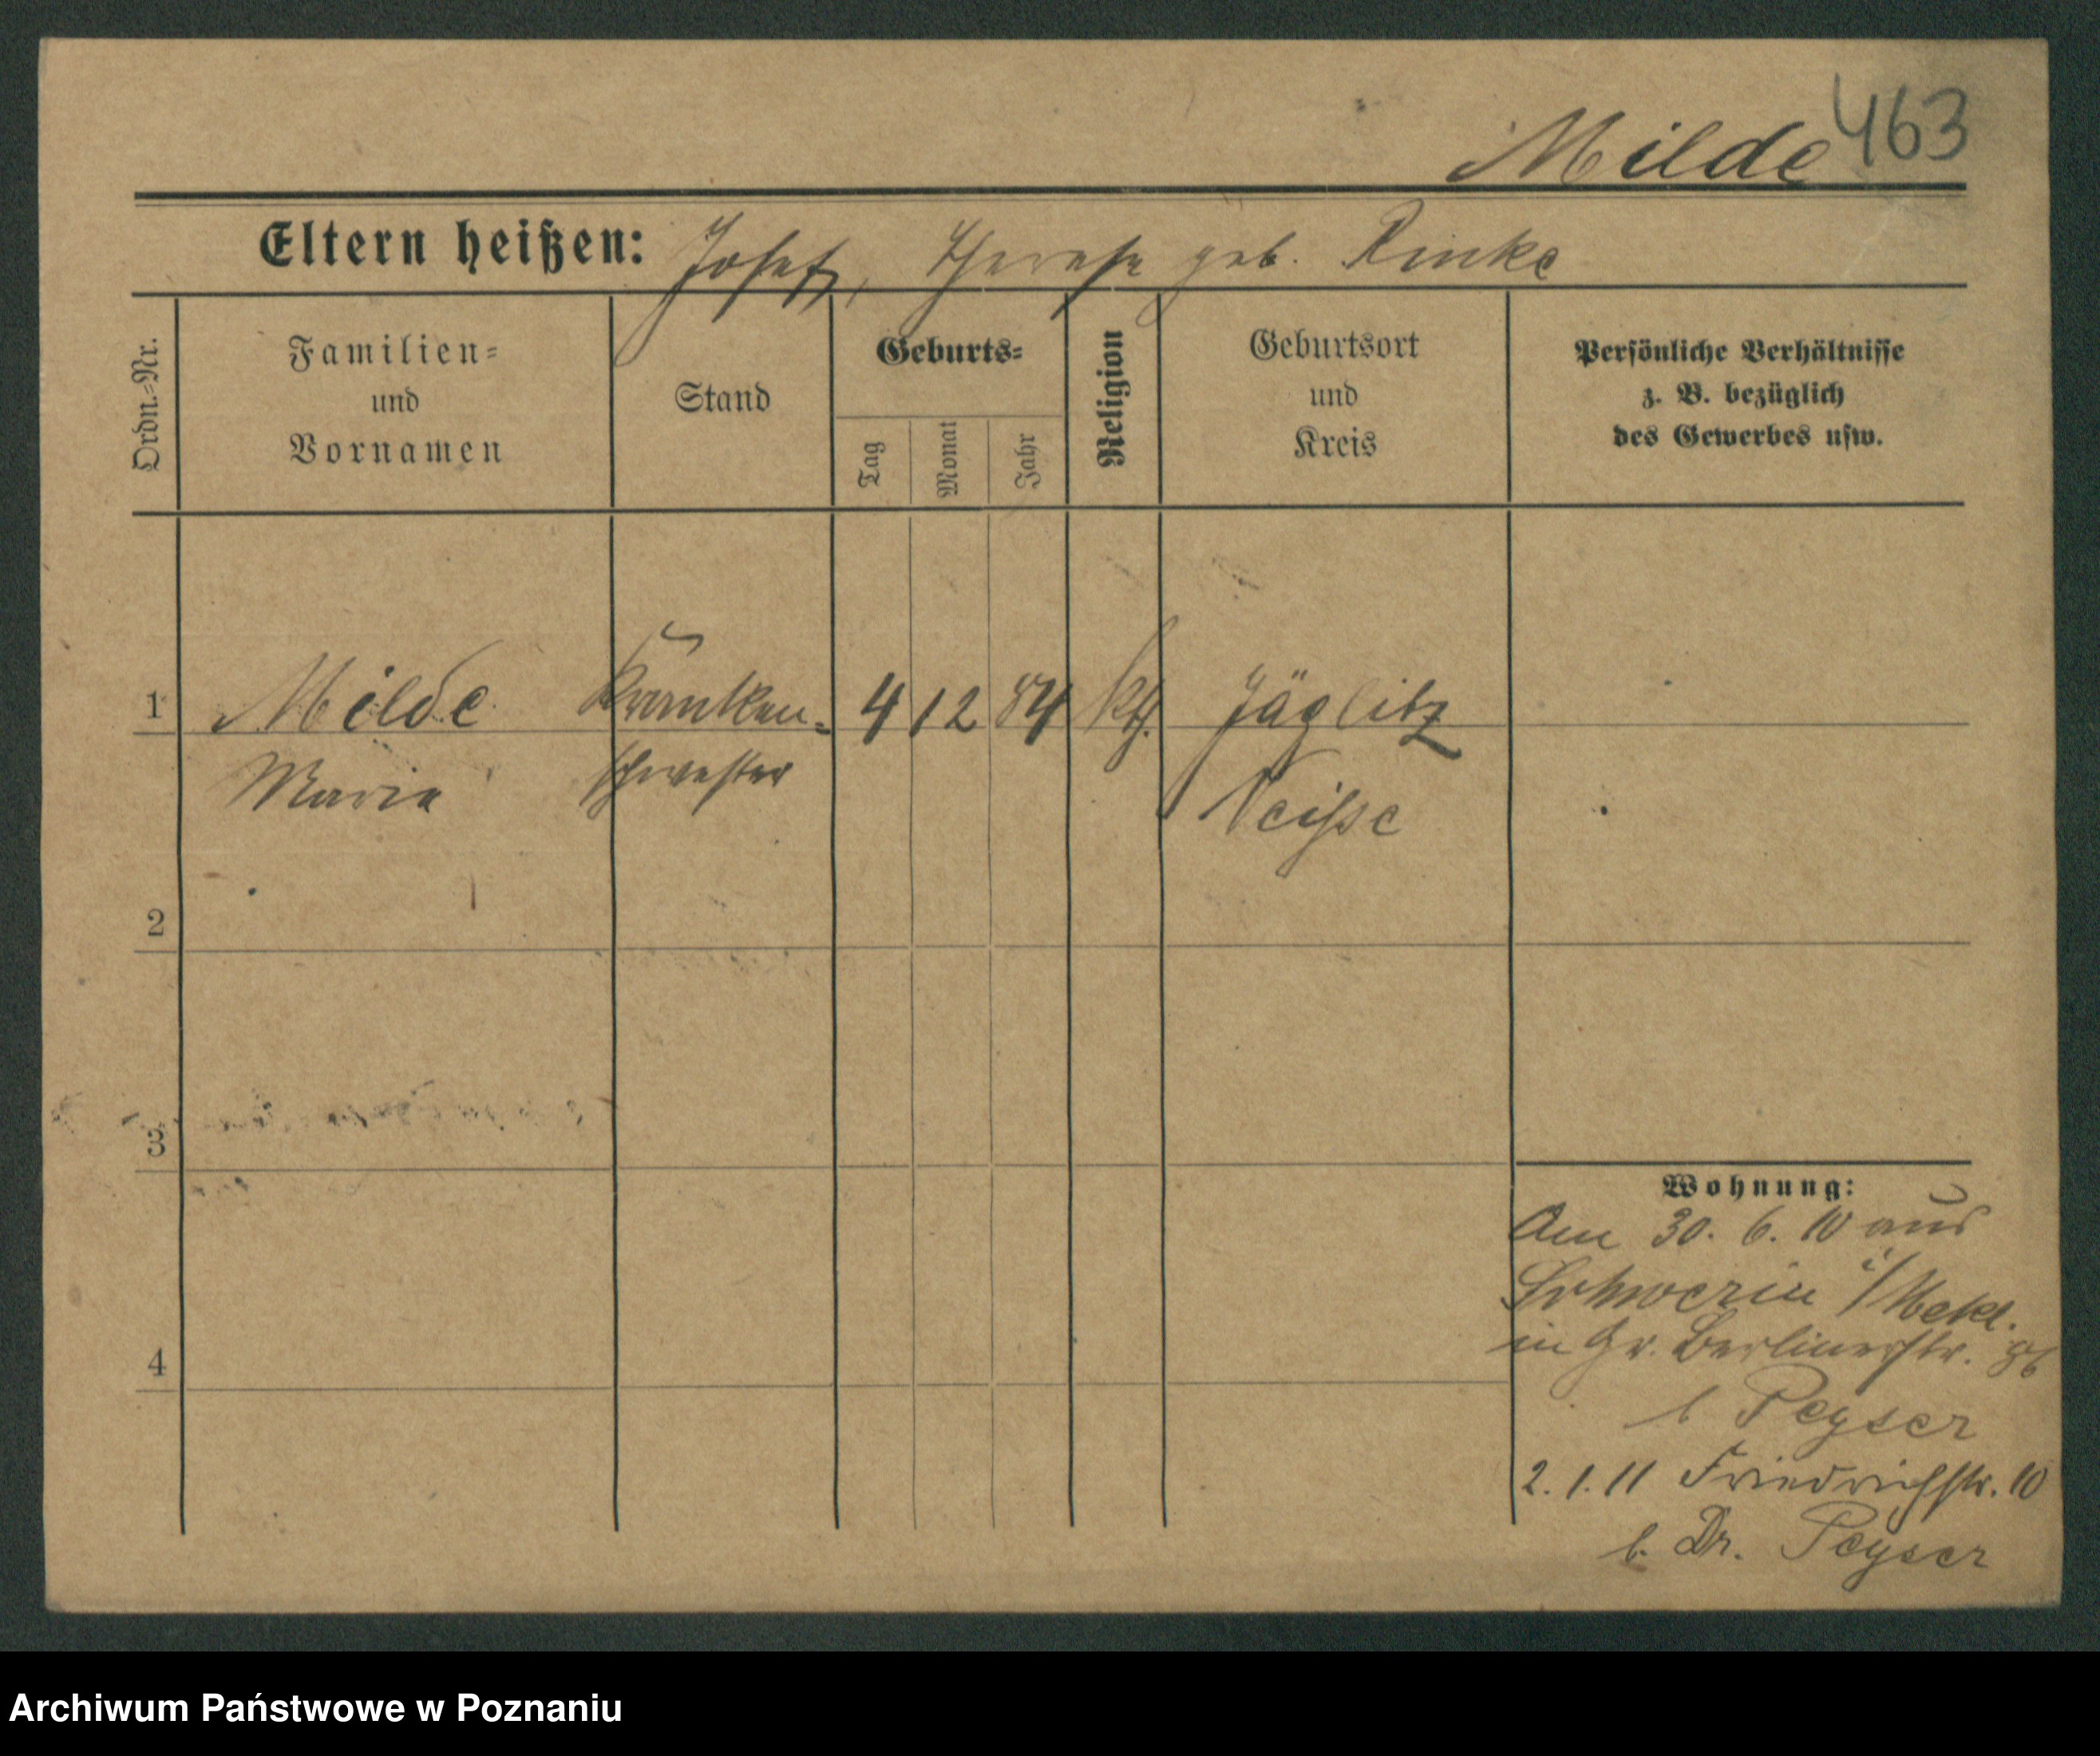 463
Milde
Eltern heißen: Josef, Therese geb. Rinke
Ordn.-Nr.
Familien-
und
Vornamen
Stand
Geburts-
Tag
Monat
Jahr
Religion
Geburtsort
und
Kreis
Persönliche Verhältnisse
z. B. bezüglich
des Gewerbes usw.
1 Milde Kranken- 4 12 84 kth. Jäglitz
Maria schwester Neisse
2
3
4
Wohnung:
Am 30. 6. 10 aus
Schwerin i/Meckl.
in Gr. Berlinerstr.
b Peyser
2. 1. 11 Friedrichstr. 10
b. Dr. Peyser
Archiwum Państwowe w Poznaniu